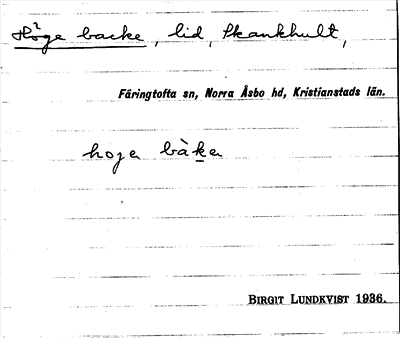 Höge backe, lid, Skankhult,
Färingtofta sn, Norra Åsbo hd, Kristianstads län.
hoge bàke
BIRGIT LUNDKVIST 1936.